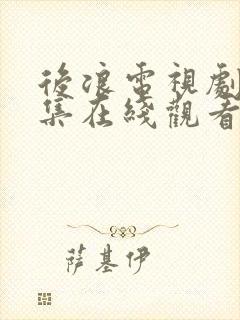 後浪電視劇
集在綫觀看
萨基伊